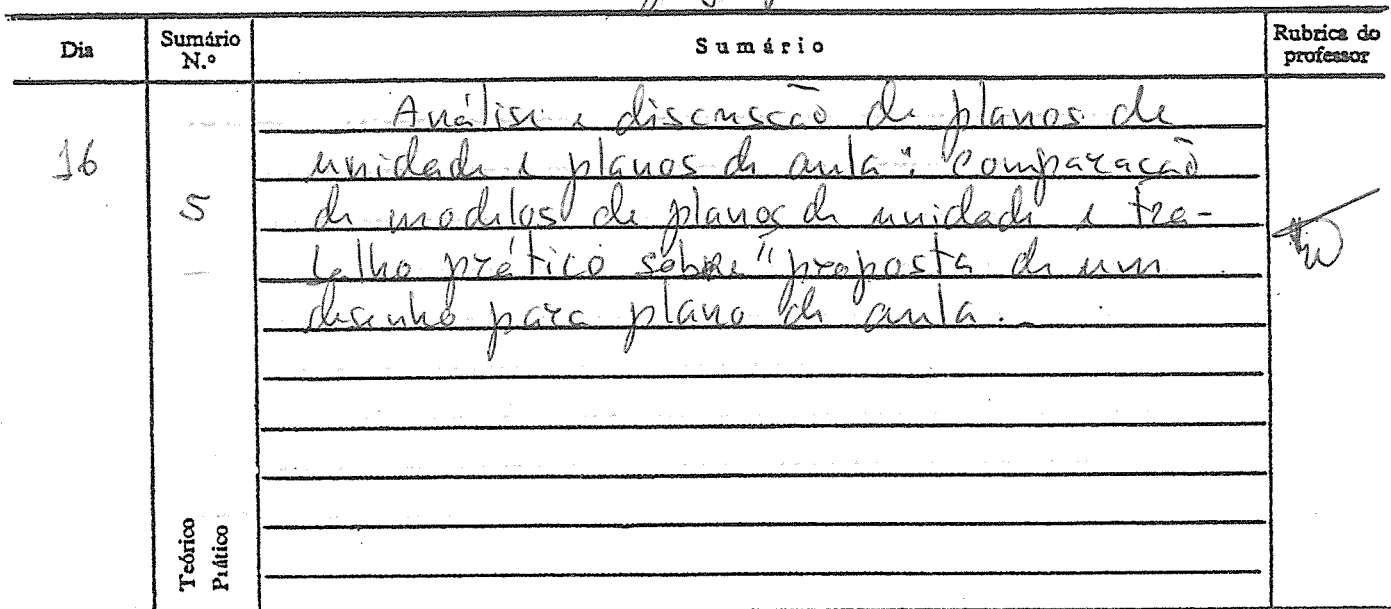 Dia Sumário N.º Sumário Rubrica do professor
Análise e discussão de planos de
16 unidade e planos de aula: Comparação
5 de modelos de planos de unidade e tra-
balho prático sobre "proposta de um
desenho para plano de aula.
Teórico
Prático